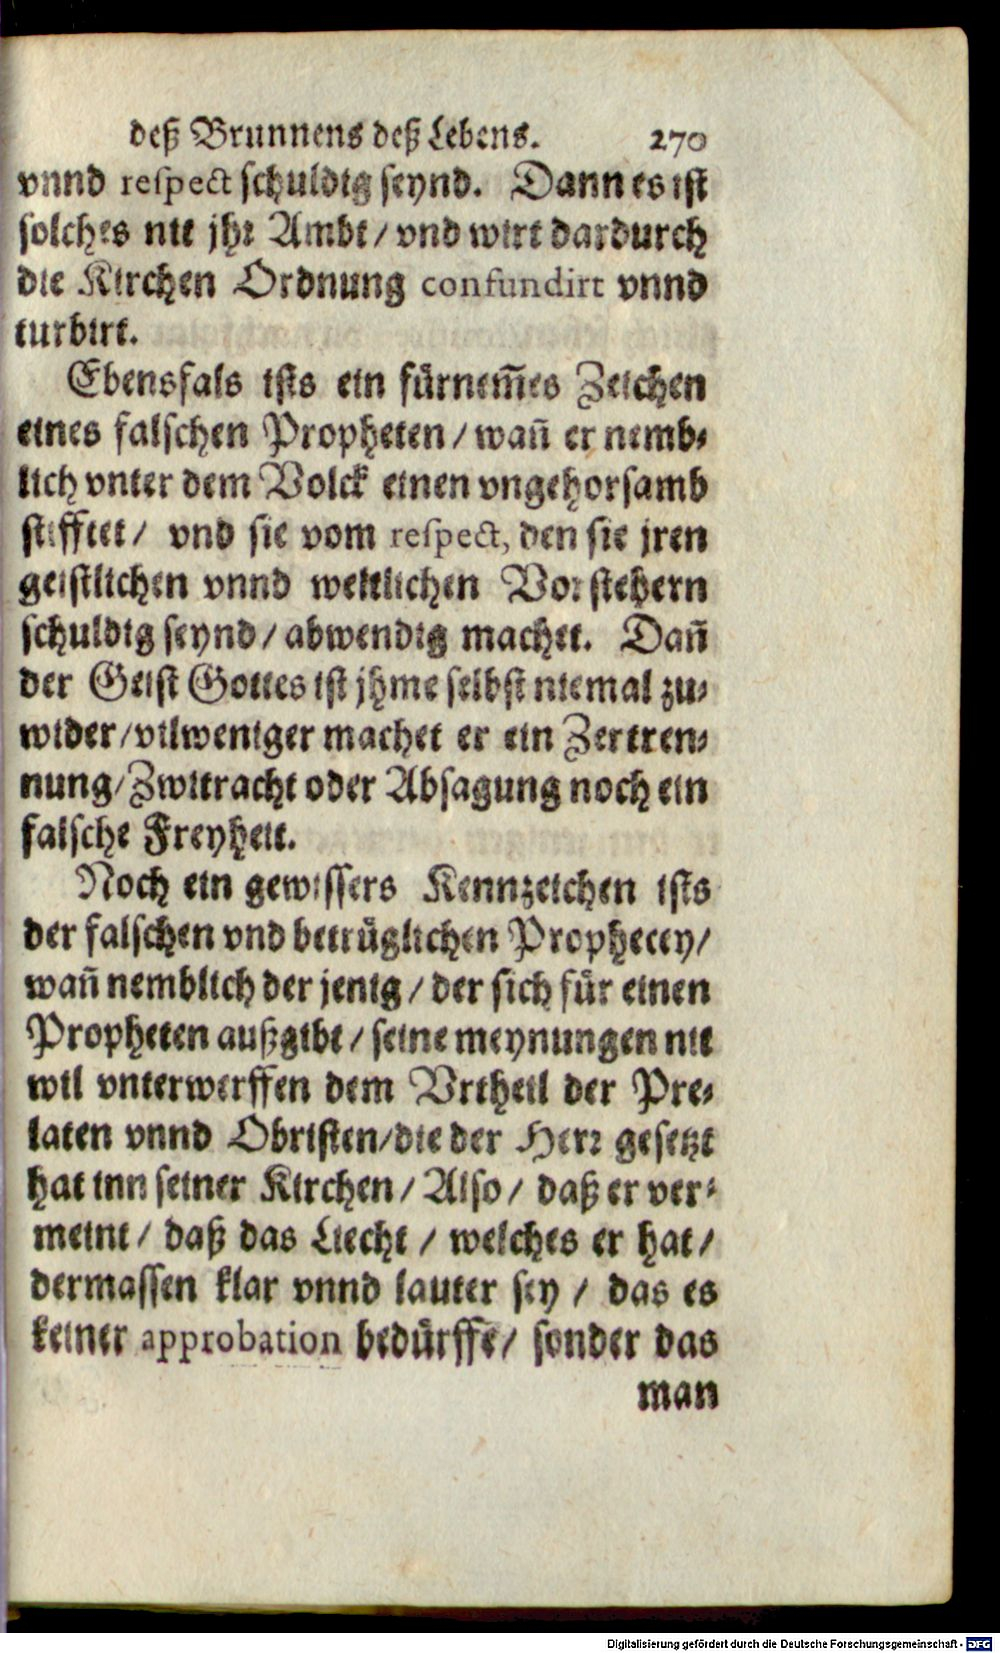 deß Brunnens deß Lebens. 270
vnnd respect schuldig seynd. Dann es ist
solches nit jhr Ambt / vnd wirt dardurch
die Kirchen Ordnung confundirt vnnd
turbirt.
Ebensfals ists ein fürnem̃es Zeichen
eines falschen Propheten / wañ er nemb⸗
lich vnter dem Volck einen vngehorsamb
stifftet / vnd sie vom respect, den sie jren
geistlichen vnnd weltlichen Vorstehern
schuldig seynd / abwendig machet. Dañ
der Geist Gottes ist jhme selbst niemal zu⸗
wider / vilweniger machet er ein Zertren⸗
nung / Zwitracht oder Absagung noch ein
falsche Freyheit.
Noch ein gewissers Kennzeichen ists
der falschen vnd betrüglichen Prophecey /
wañ nemblich der jenig / der sich für einen
Propheten außgibt / seine meynungen nit
wil vnterwerffen dem Vrtheil der Pre⸗
laten vnnd Obristen / die der Herr gesetzt
hat inn seiner Kirchen / Also / daß er ver⸗
meint / daß das Liecht / welches er hat /
dermassen klar vnnd lauter sey / das es
keiner approbation bedürffe / sonder das
man
Digitalisierung gefördert durch die Deutsche Forschungsgemeinschaft - DFG